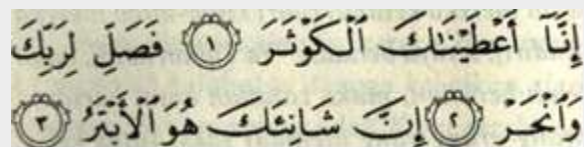 إِنَّا أَعْطَيْنَاكَ الْكَوْثَرَ ١ فَصَلِّ لِرَبِّكَ
وَانْحَرْ ٢ إِنَّ شَانِئَكَ هُوَ الْأَبْتَرُ ٣